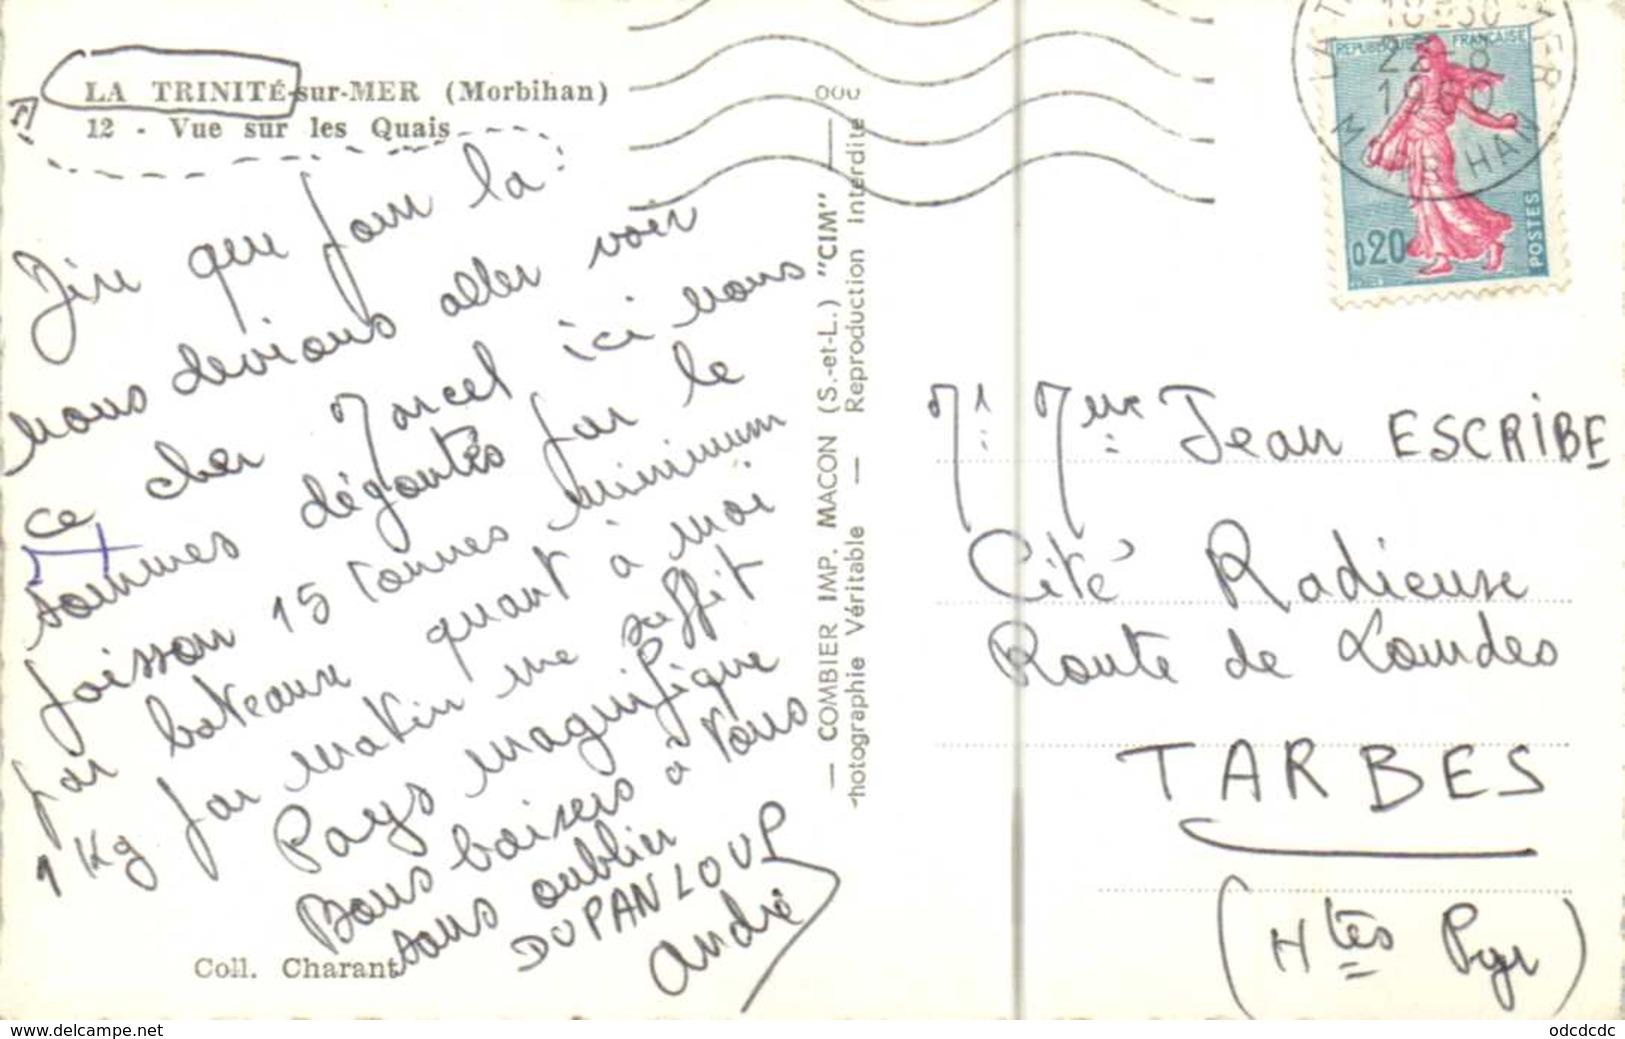 LA TRINITÉ-sur-MER (Morbihan)
12 - Vue sur les Quais
Dire que pour la
nous devions aller voir
ce cher Marcel ici nous
sommes dégoutés par le
poisson 15 tonnes minimum
par bateaux quant à moi
1 Kg par matin me suffit
Pays magnifique
Bons baisers à vous
sans oublier
DUPANLOUP
André
Coll. Charant
— COMBIER IMP. MACON (S.-et-L.) "CIM" —
Photographie Véritable — Reproduction Interdite
REPUBLIQUE FRANÇAISE
0,20
POSTES
22-8
1960
MORBIHAN
Mr Mme Jean ESCRIBE
Cité Radieuse
Route de Lourdes
TARBES
(Htes Pyr)
www.delcampe.net
odcdcdc